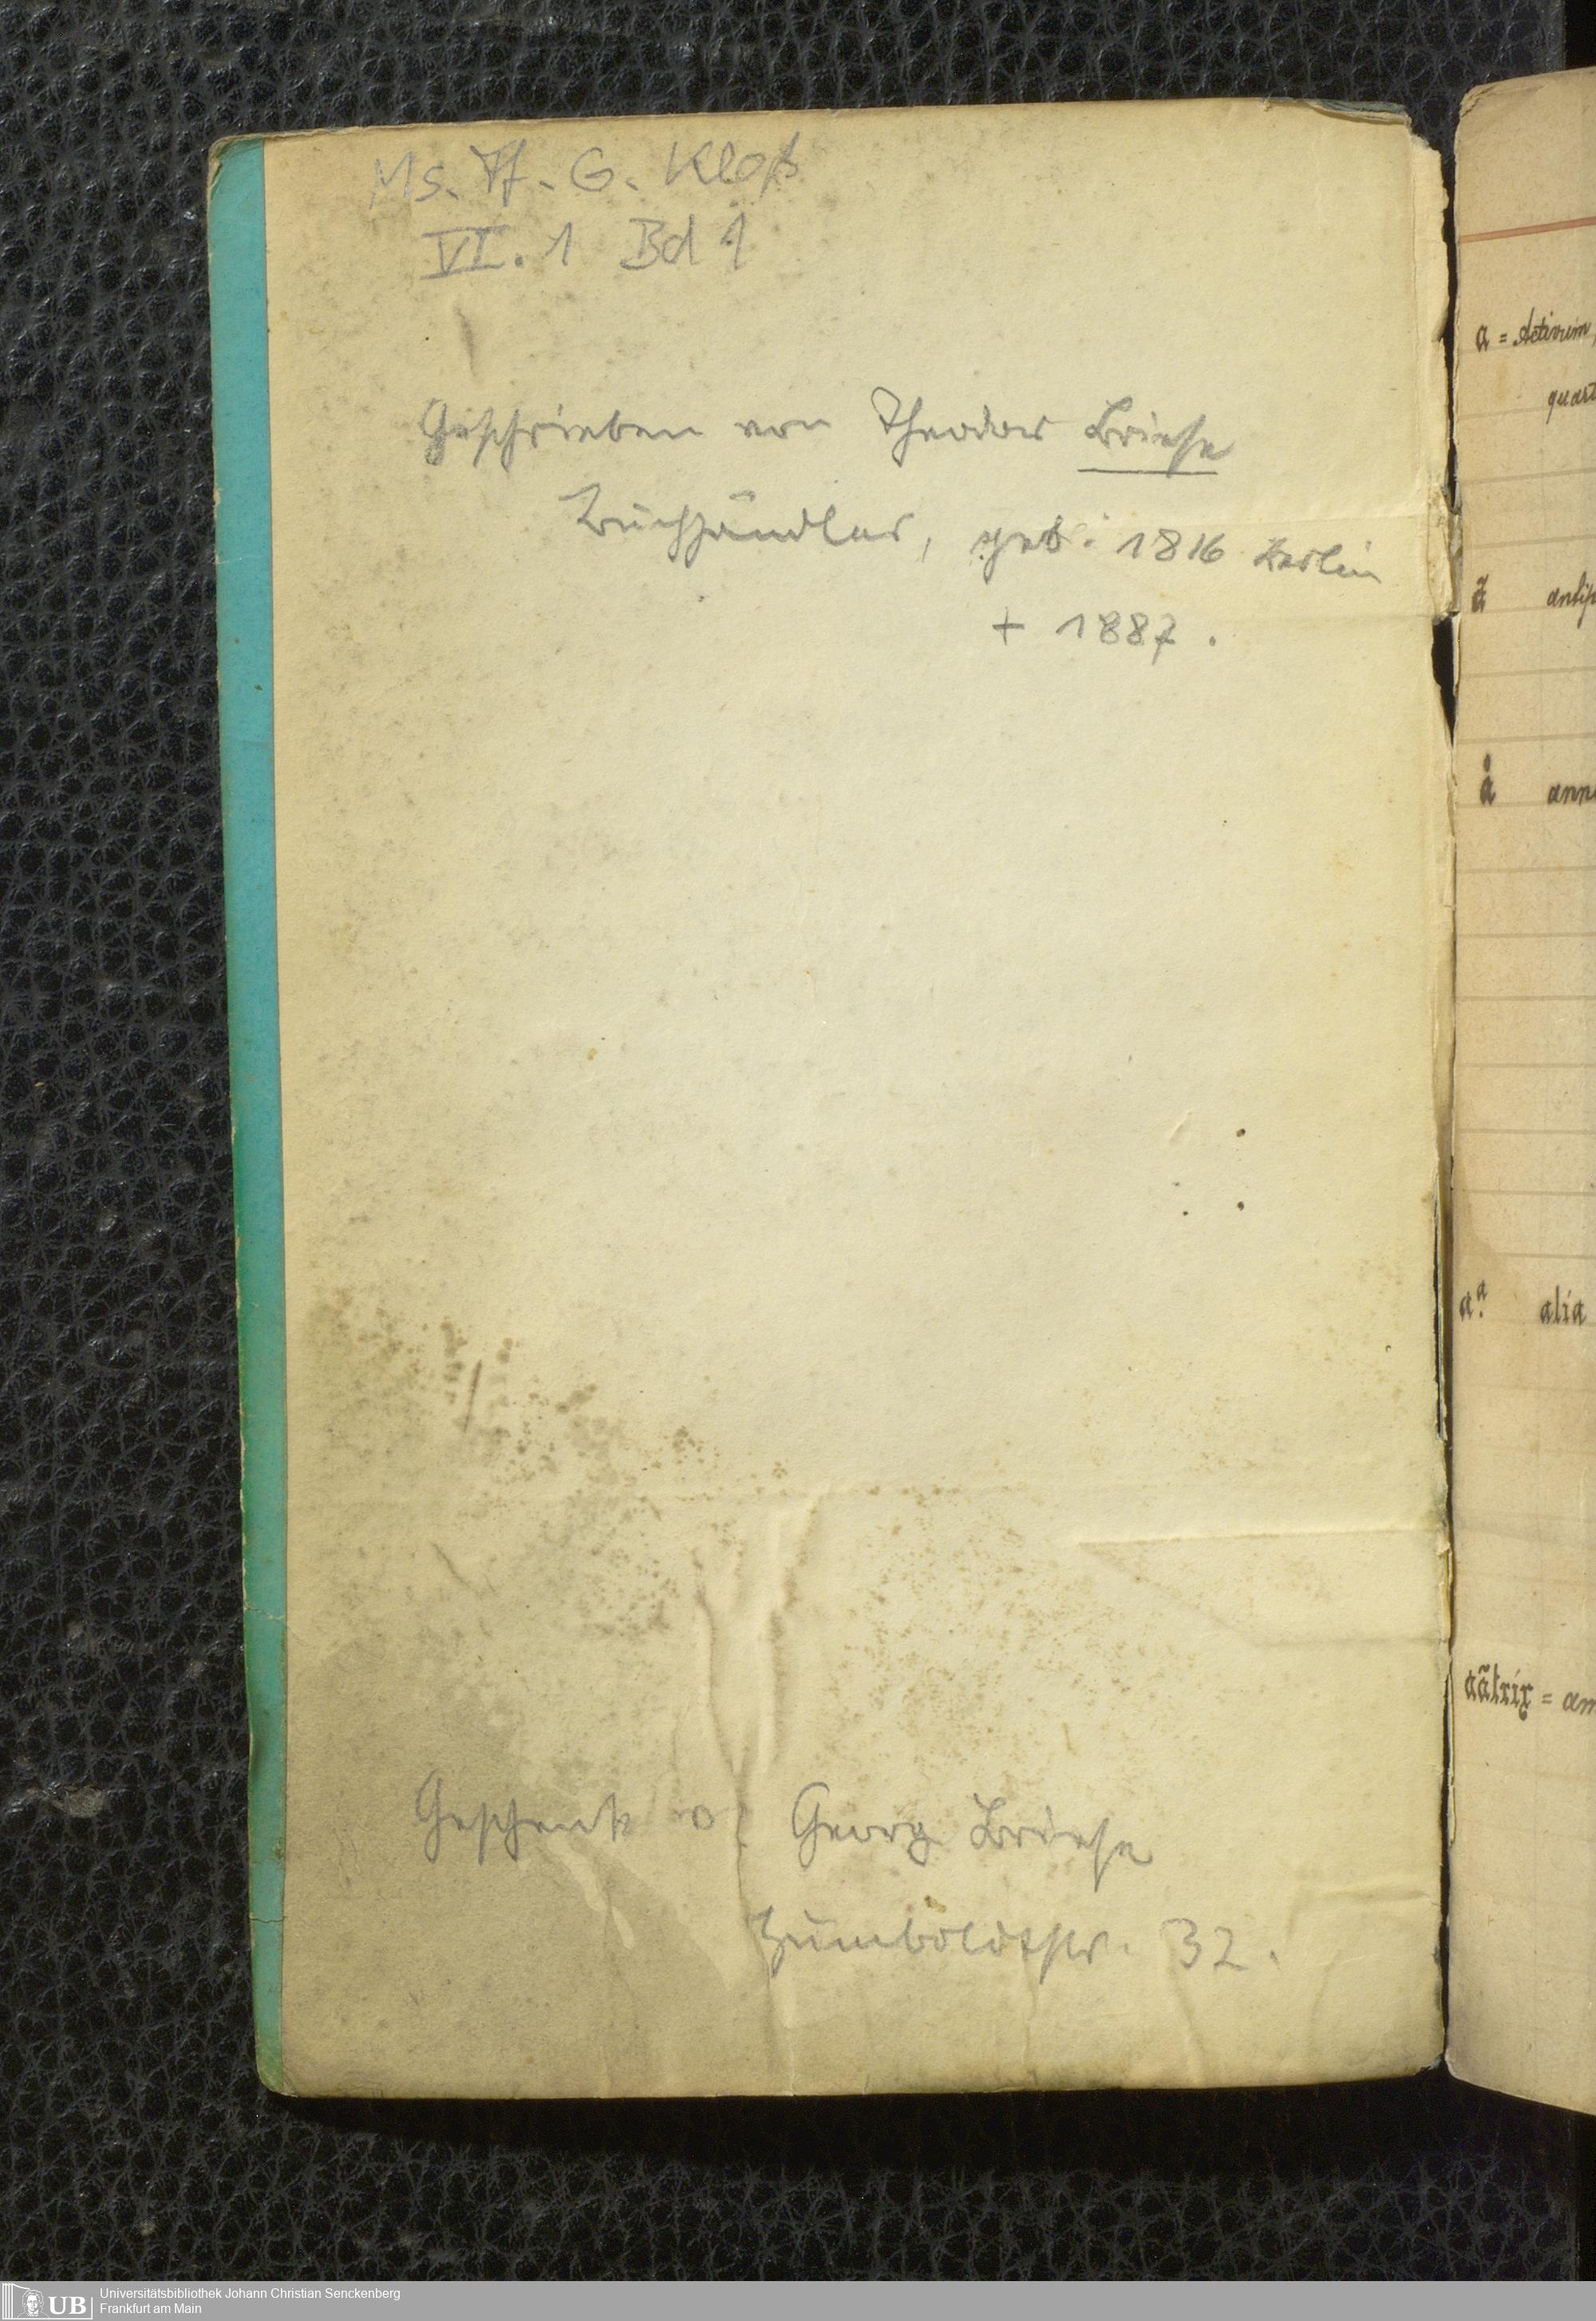 Ms. Ff. G. Kloß
VI. 1 Bd 1
Geschrieben von Theodor Briese
Buchhändler, geb. 1816 Berlin
+ 1887.
Geschenk v. Georg Briese
Humboldtstr. 32.
a = Activum,
quart
antip
å ann
aª. alia
aãtrix = am
UB
Universitätsbibliothek Johann Christian Senckenberg
Frankfurt am Main